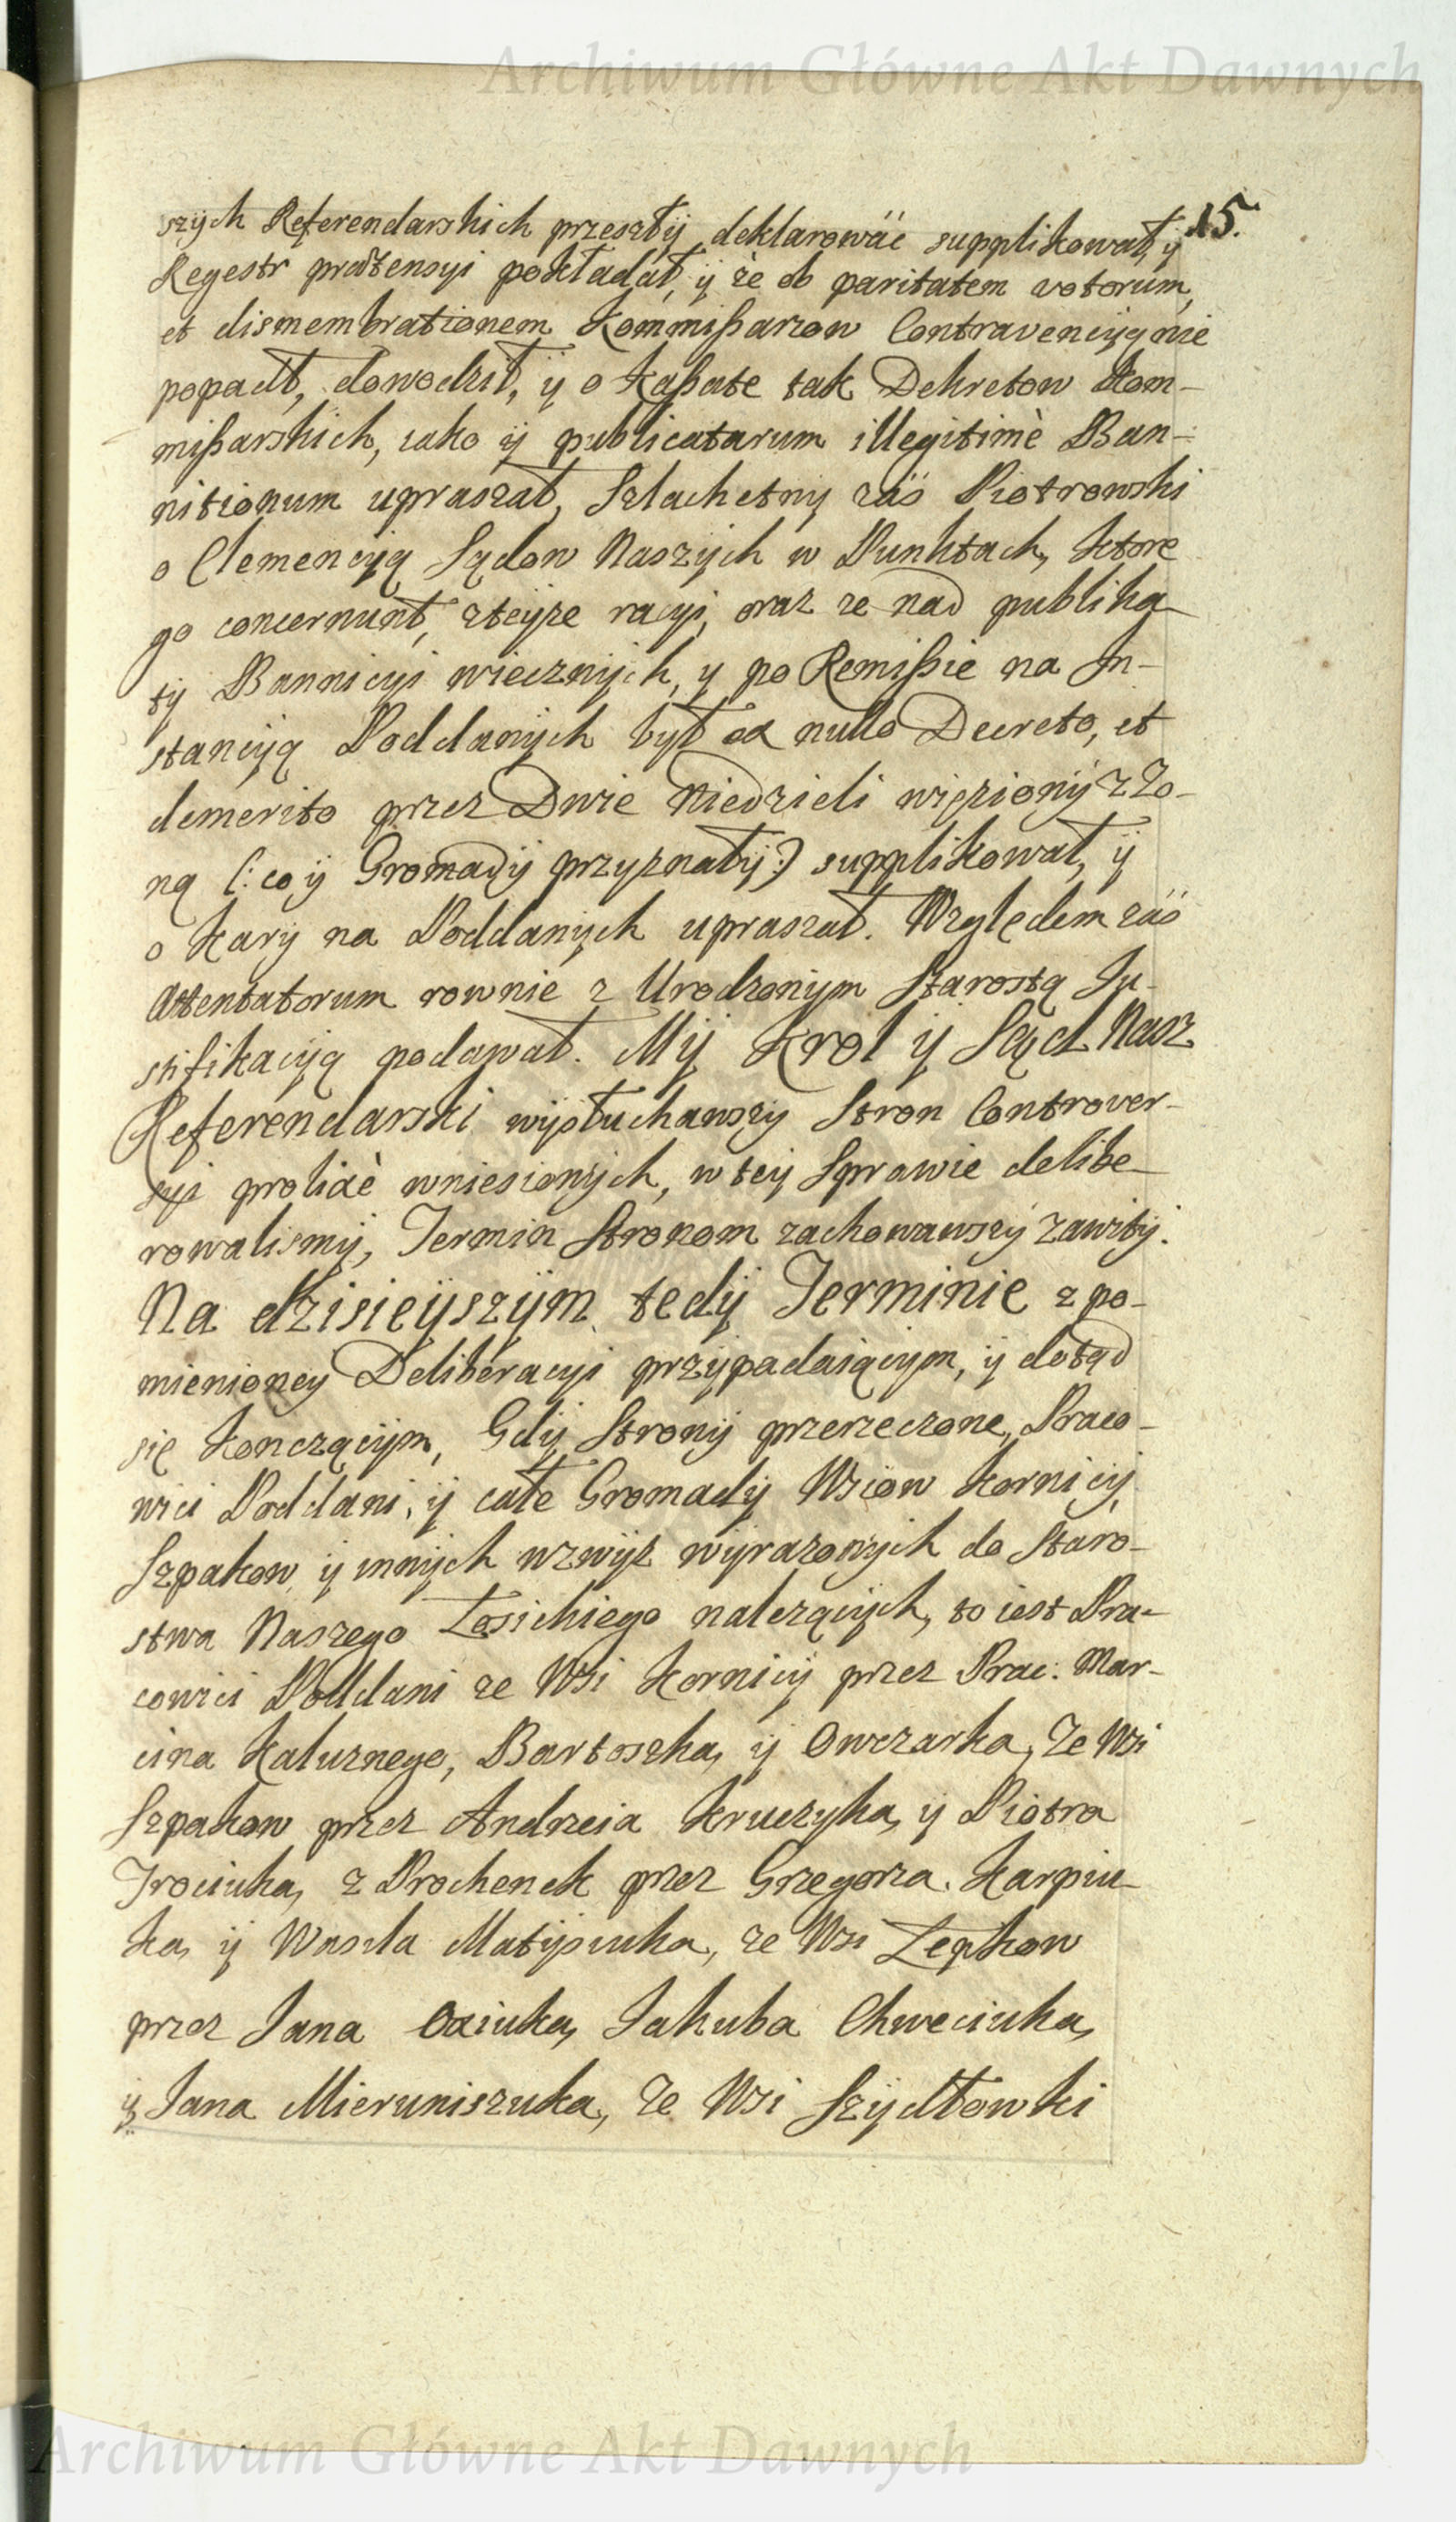 Archiwum Główne Akt Dawnych
15.
szych Referendarskich przeszłÿ deklarowäć supplikował, ÿ
Regestr prætensyi pokładał, ÿ że ob paritatem votorum,
et dismembrationem Kommißarzow Contravencÿą nie
popadł, dowodził, ÿ o Kaßatę tak Dekretow Kom-
mißarskich, iako ÿ publicatarum illegitimè Ban-
nitionum upraszał, Szlachetny zaś Piotrowski
o Clemencÿą Sądow Naszÿch w Punktach, które
go concernunt, zteÿże racÿi, oraz że nad publika-
tÿ Bannicÿi wiecznÿch, y po Remißie na In-
stancÿą Poddanÿch był ex nullo Decreto, et
demerito przez Dwie Niedzieli więzionÿ z Żo-
ną (: co ÿ Gromadÿ przyznałÿ :) supplikował, ÿ
o Karÿ na Poddanÿch upraszał. Względem zaś
Attentatorum rownie z Urodzonÿm Starostą Ju-
stifikacÿą podawał. Mÿ Krol ÿ Sąd Nasz
Referendarski wÿsłuchawszÿ Stron Controver-
syi prolixè wniesionÿch, w teÿ Sprawie delibe-
rowalismÿ, Termin Stronom zachowawszÿ zawitÿ.
Na dzisieÿszÿm tedÿ Terminie z po-
mienioney Deliberacÿi przÿpadaiącÿm, ÿ dotąd
się kończącÿm, Gdÿ Stronÿ przerzeczone, Praco-
wici Poddani, ÿ całe Gromadÿ Wsiow Kornicÿ,
Szpakow, ÿ innÿch wzwÿż wÿrażonÿch do Staro-
stwa Naszego Łosickiego należącÿch, to iest Pra-
cowici Poddani ze Wsi Kornicÿ przez Prac: Mar-
cina Kalużnego, Bartoszka, ÿ Owczarka, Ze Wsi
Szpakow przez Andrzeia Kruczyka, ÿ Piotra
Trociuka, z Prochenek przez Grzegorza Karpiu-
ka, ÿ Wasila Matÿsiuka, ze Wsi Łepkow
przez Jana Oxiuka, Jakuba Chweciuka,
ÿ Jana Mieruniszuka, Ze Wsi Szÿdłowki
Archiwum Główne Akt Dawnych